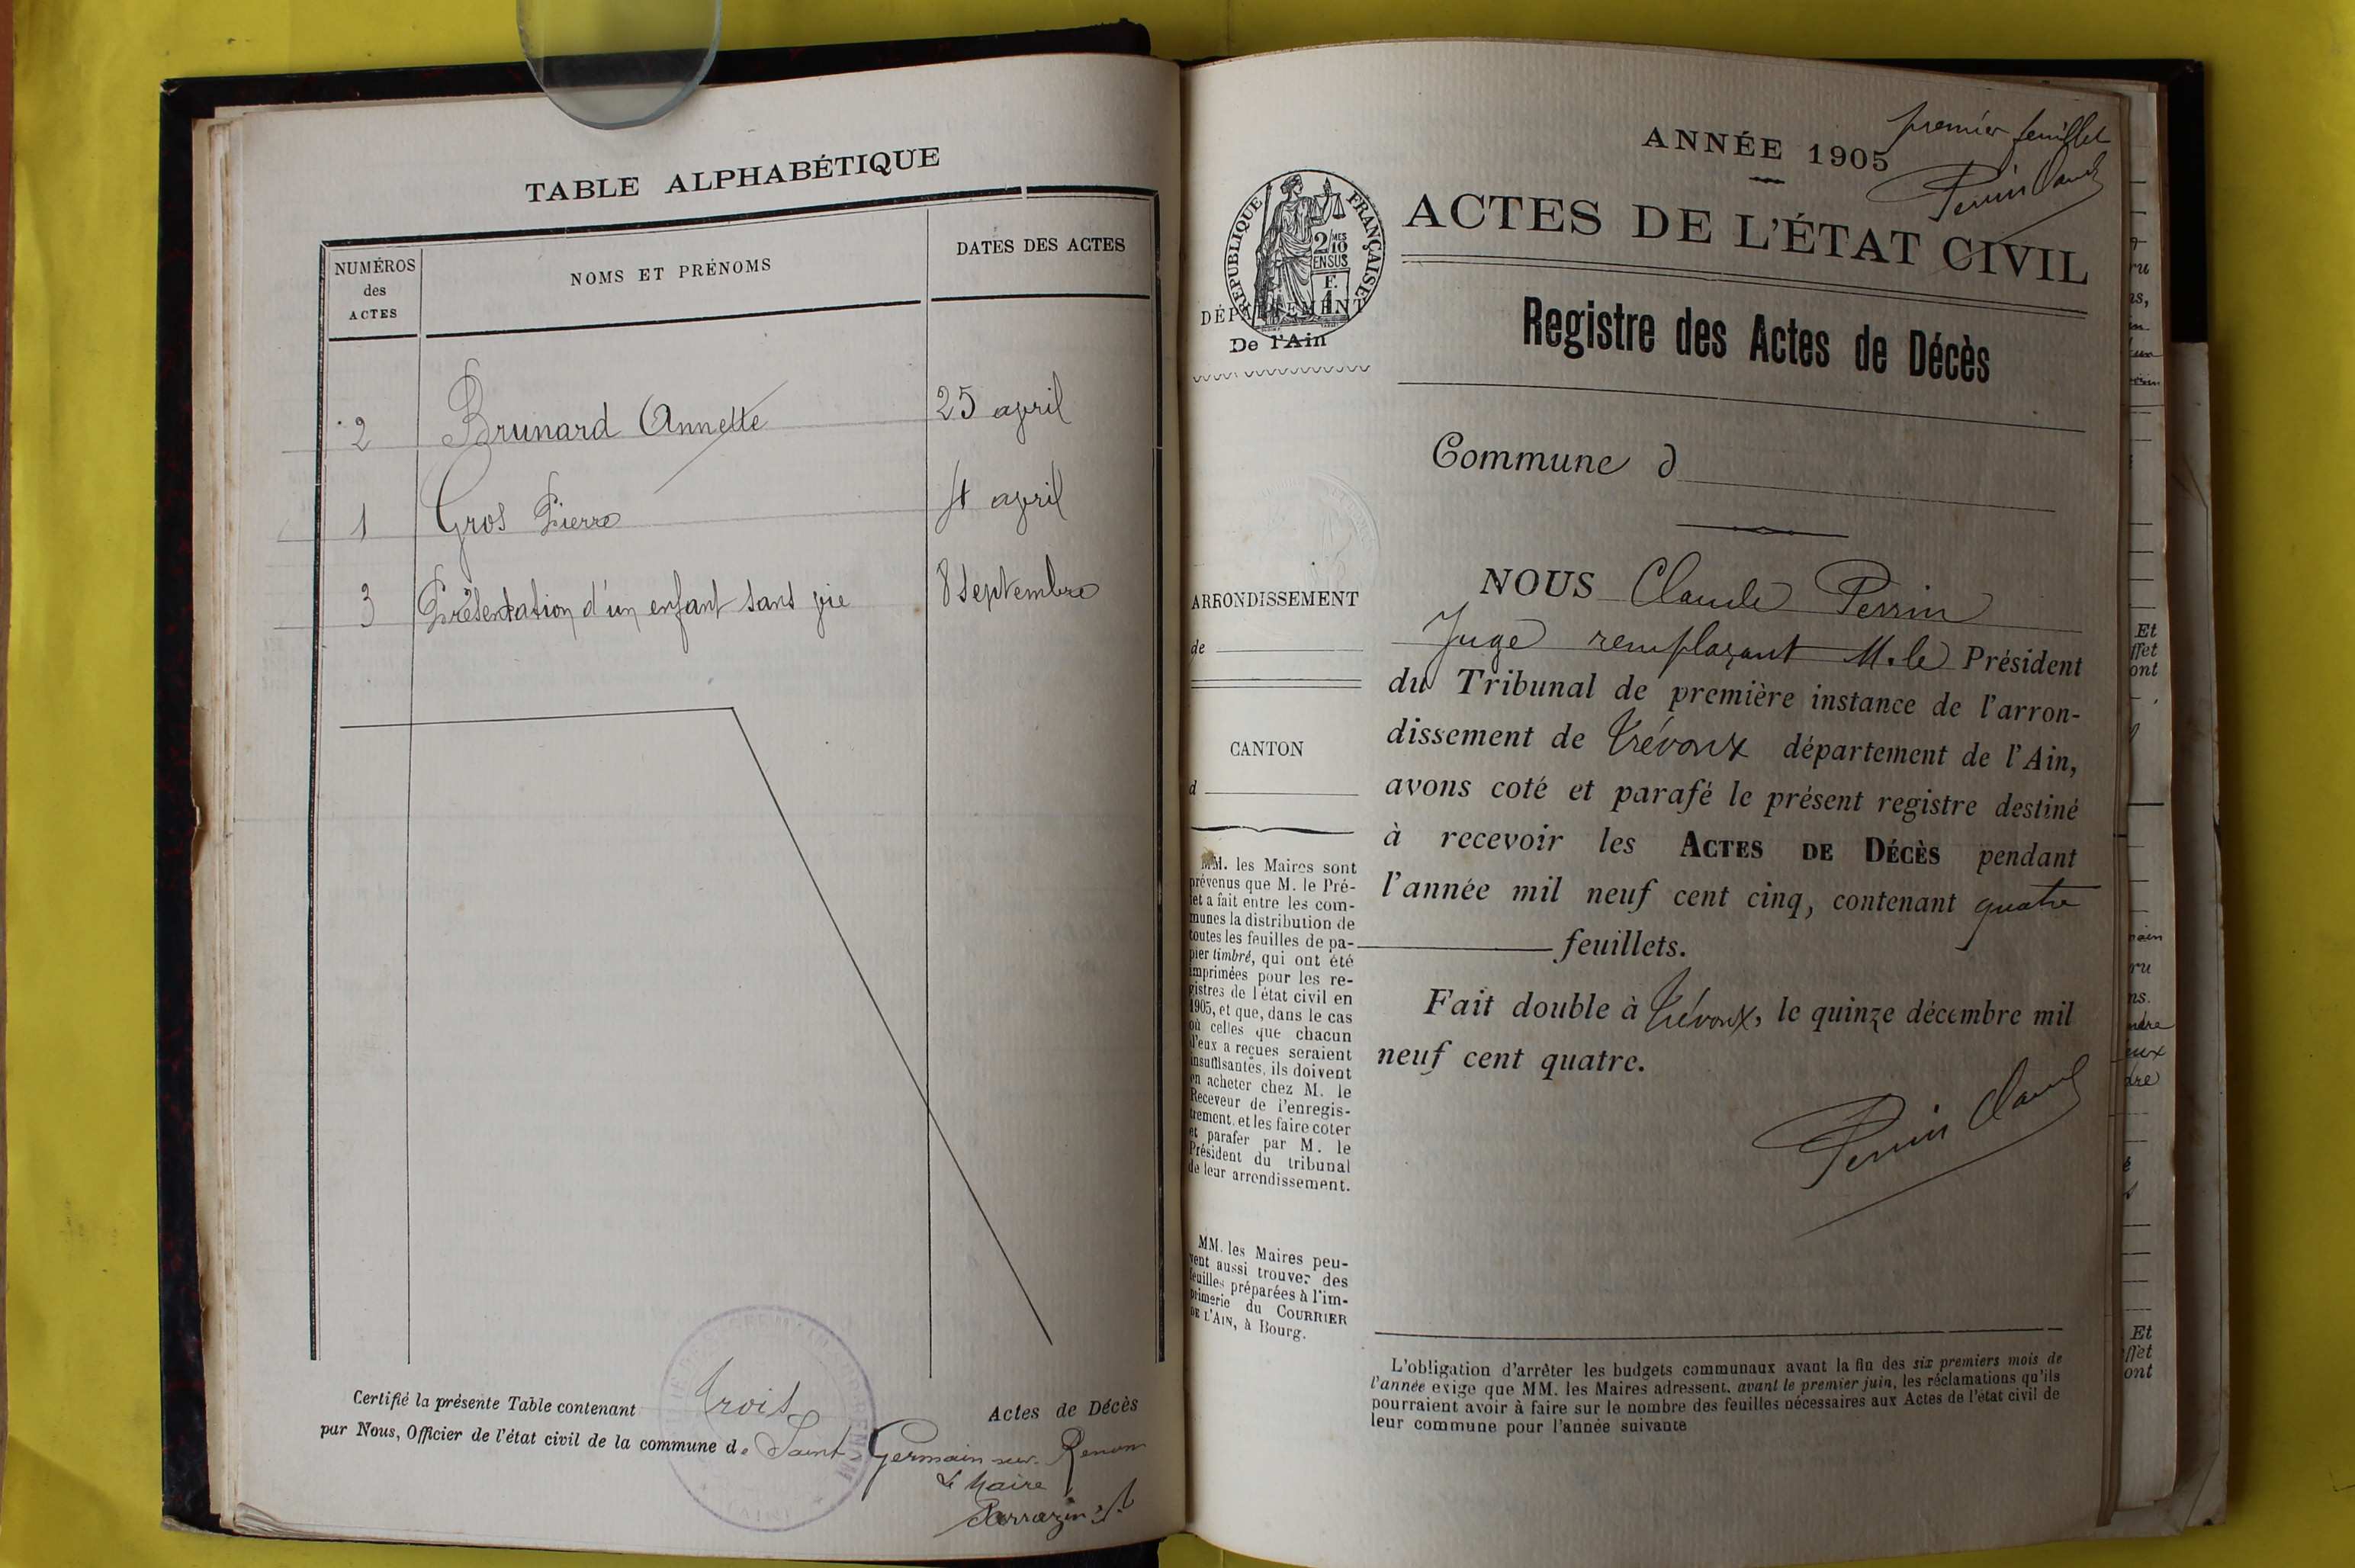 TABLE ALPHABÉTIQUE
NUMÉROS
des
ACTES
NOMS ET PRÉNOMS
DATES DES ACTES
2 Brunard Annette 25 april
1 Gros Pierre 4 april
3 Présentation d'un enfant sans vie 8 septembre
Certifié la présente Table contenant trois Actes de Décès
par Nous, Officier de l'état civil de la commune de Saint-Germain-sur-Renon
Le Maire
ANNÉE 1905
premier feuillet
Perrin Claude
ACTES DE L'ÉTAT CIVIL
RÉPUBLIQUE FRANÇAISE
2/10 MES
EN SUS
F.
1
DÉPARTEMENT
De l'Ain
Registre des Actes de Décès
Commune d
ARRONDISSEMENT
de
CANTON
d
MM. les Maires sont
prévenus que M. le Pré-
fet a fait entre les com-
munes la distribution de
toutes les feuilles de pa-
pier timbré, qui ont été
imprimées pour les re-
gistres de l'état civil en
1905, et que, dans le cas
où celles que chacun
d'eux a reçues seraient
insuffisantes, ils doivent
en acheter chez M. le
Receveur de l'enregis-
trement, et les faire coter
et parafer par M. le
Président du tribunal
de leur arrondissement.
MM. les Maires peu-
vent aussi trouver des
feuilles préparées à l'im-
primerie du COURRIER
DE L'AIN, à Bourg.
NOUS Claude Perrin
Juge remplaçant M. le Président
du Tribunal de première instance de l'arron-
dissement de Trévoux département de l'Ain,
avons coté et parafé le présent registre destiné
à recevoir les ACTES DE DÉCÈS pendant
l'année mil neuf cent cinq, contenant quatre
feuillets.
Fait double à Trévoux, le quinze décembre mil
neuf cent quatre.
Perrin Claude
L'obligation d'arrêter les budgets communaux avant la fin des six premiers mois de
l'année exige que MM. les Maires adressent, avant le premier juin, les réclamations qu'ils
pourraient avoir à faire sur le nombre des feuilles nécessaires aux Actes de l'état civil de
leur commune pour l'année suivante
Et
ffet
ont
Et
ffet
ont